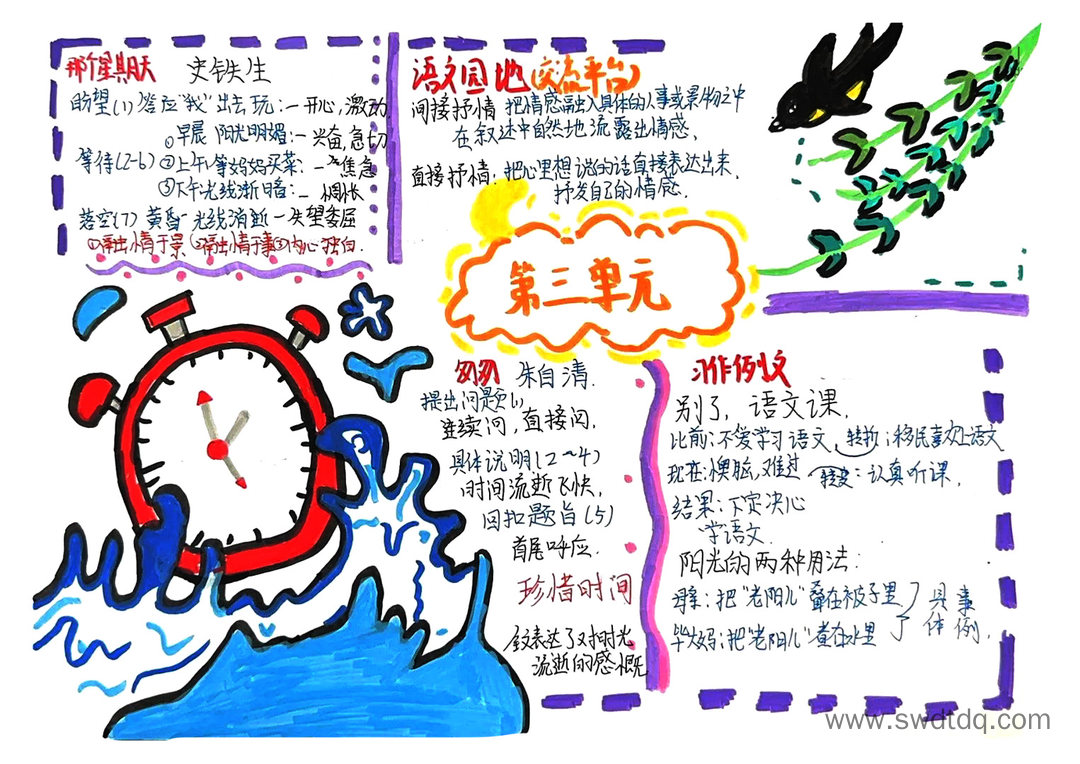 那个星期天 史铁生
盼望(1)答应"我"出去玩:一开心,激动
①早晨 阳光明媚:一兴奋,急切
等待(2-6) ②上午等妈妈买菜:一焦急
③下午光线渐暗:一惆怅
落空(7)黄昏 光线消逝一失望委屈
①寓出情于景(2)寓出情于事③内心独白.
语文园地(交流平台)
间接抒情 把情感融入具体的人事或景物之中
在叙述中自然地流露出情感,
直接抒情:把心里想说的话直接表达出来,
抒发自己的情感.
第三单元
匆匆 朱自清.
提出问题(1)
连续问,直接问.
具体说明(2~4)
时间流逝飞快,
回扣题旨(5)
首尾呼应.
珍惜时间
全文表达了对时光
流逝的感慨
习作例文
别了,语文课.
以前:不爱学习语文,转折:移民喜欢上语文
现在:懊脑,难过 转变:认真听课.
结果:下定决心
学语文.
阳光的两种用法:
母亲:把"老阳儿"叠在被子里
毕大妈:把"老阳儿"煮在水里
具事
体例.
www.swdtdq.com